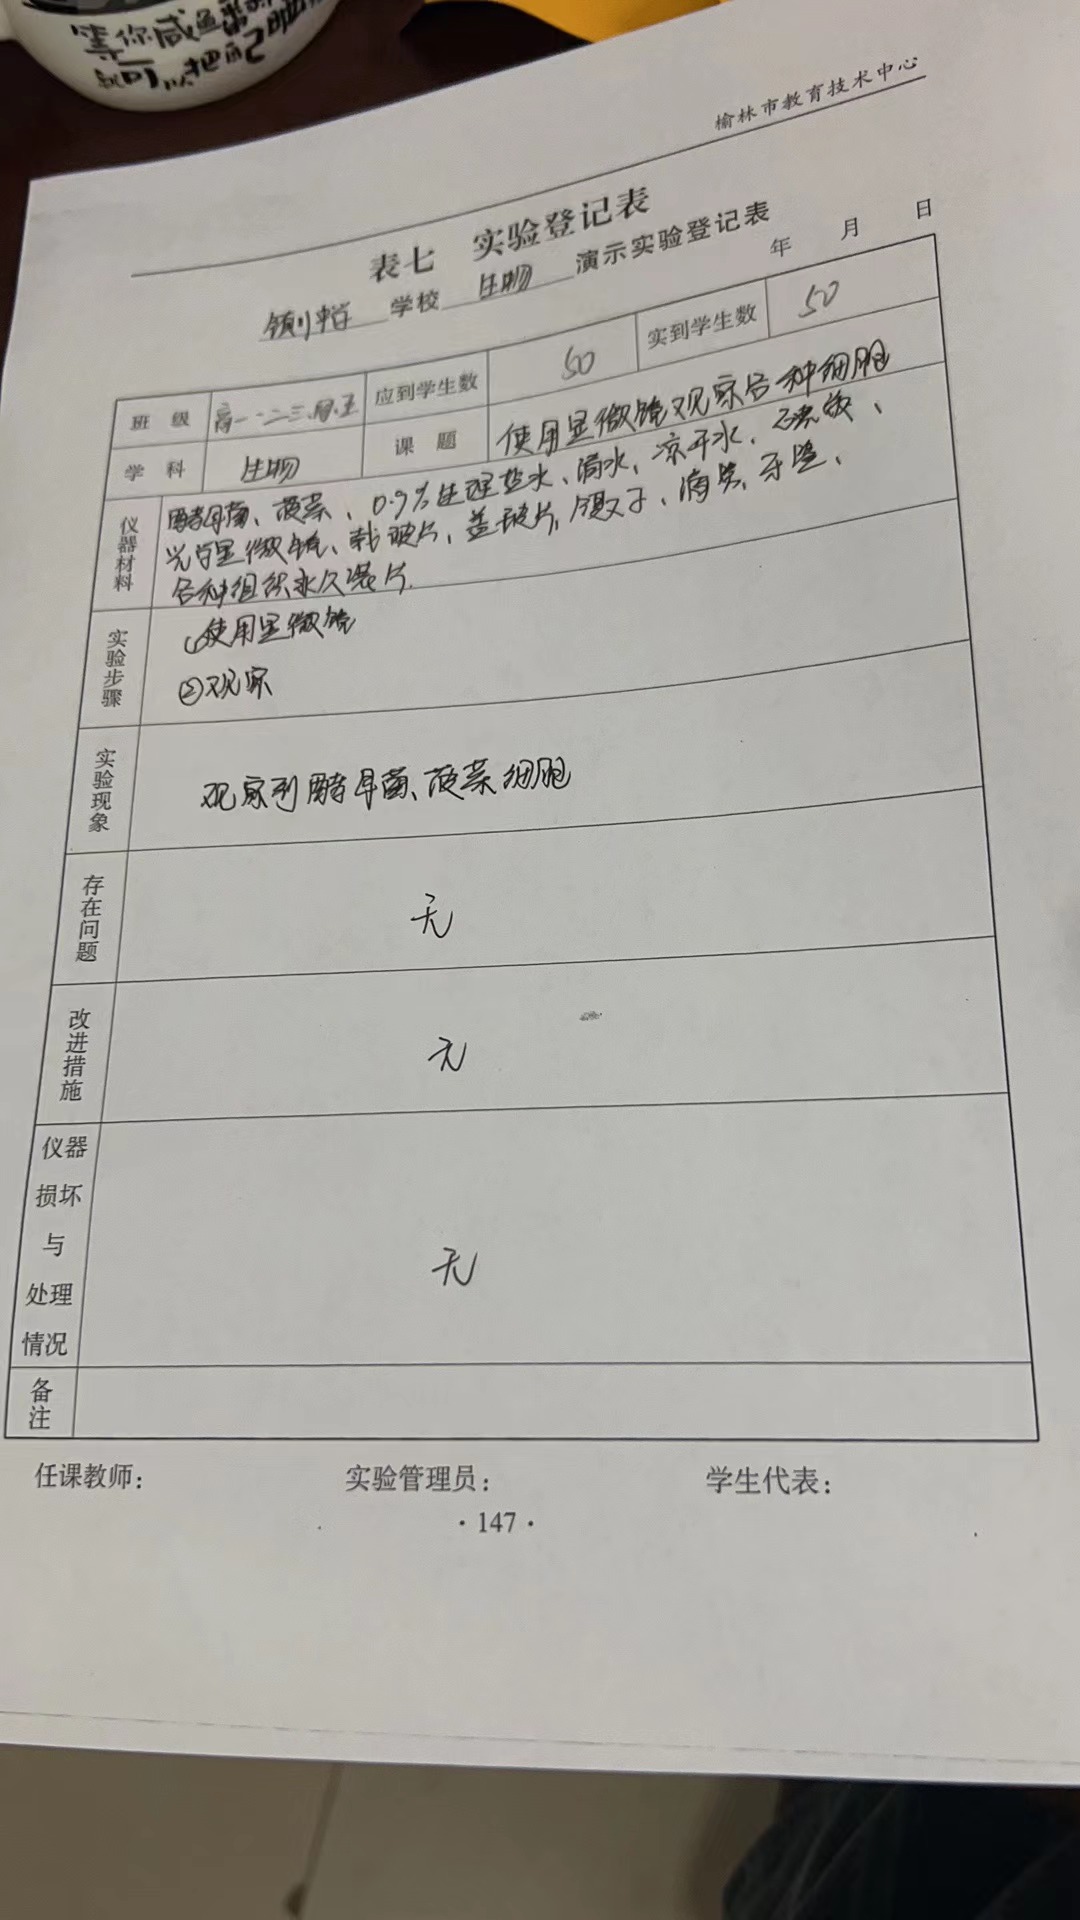 等你咸鱼翻
就可以把
榆林市教育技术中心
表七 实验登记表
学校 生物 演示实验登记表
年 月 日
班级 高一.二三.四.五 应到学生数 50 实到学生数 50
学科 生物 课题 使用显微镜观察各种细胞
仪器材料
酵母菌、菠菜、0.9%生理盐水、清水、凉开水、碘液、
光学显微镜、载玻片、盖玻片、镊子、滴管、牙签、
各种组织永久装片.
实验步骤
①使用显微镜
②观察
实验现象
观察到酵母菌、菠菜细胞
存在问题
无
改进措施
无
仪器
损坏
与
处理
情况
无
备注
任课教师: 实验管理员: 学生代表:
·147·